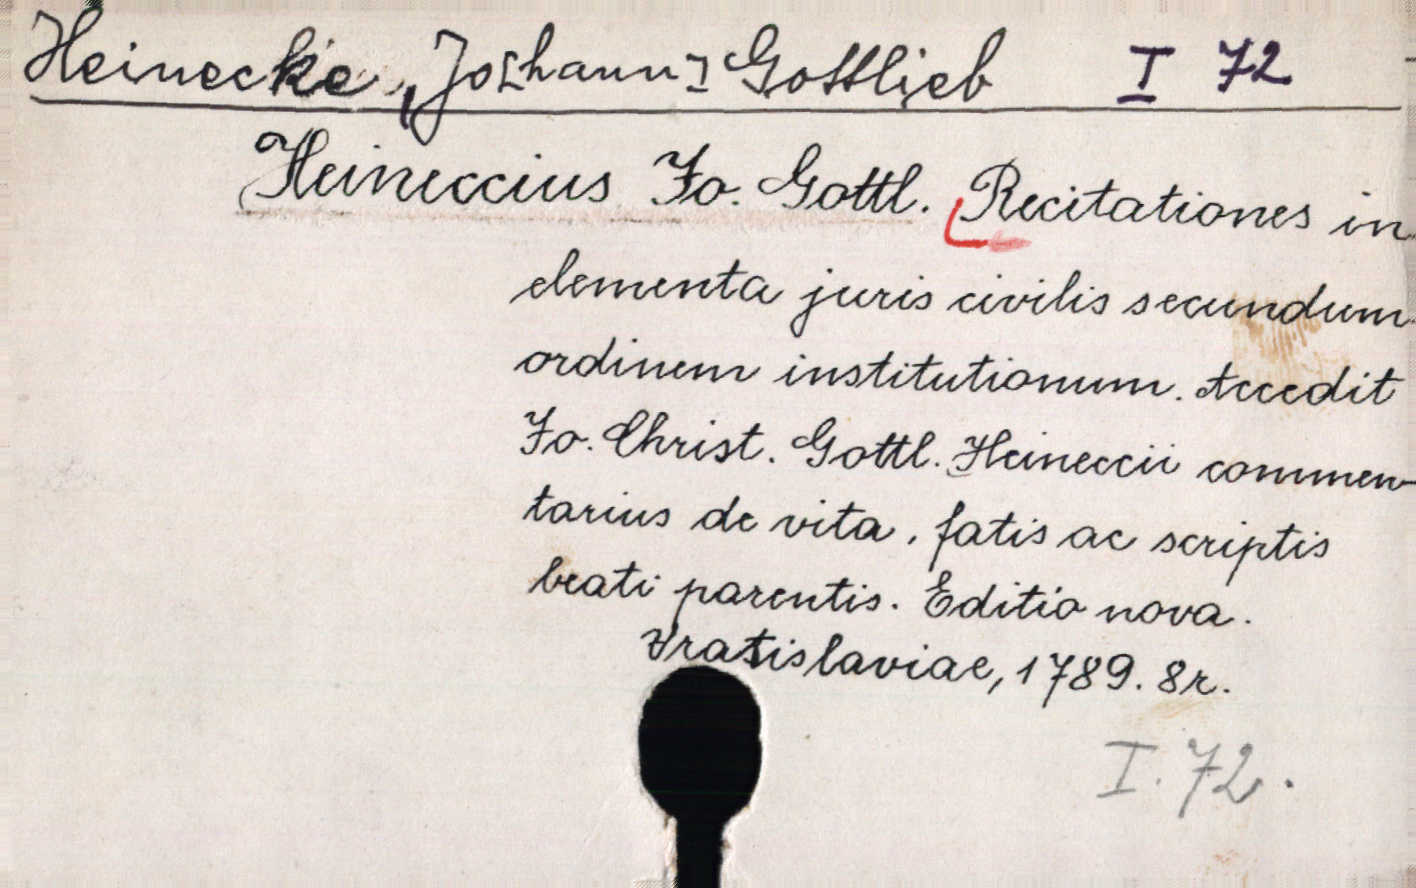 Heinecke, Jo[hann] Gottlieb I 72
Heineccius Jo. Gottl. Recitationes in
elementa juris civilis secundum
ordinem institutionum. Accedit
Jo. Christ. Gottl. Heineccii commen-
tarius de vita, fatis ac scriptis
beati parentis. Editio nova.
Vratislaviae, 1789. 8r.
I. 72.